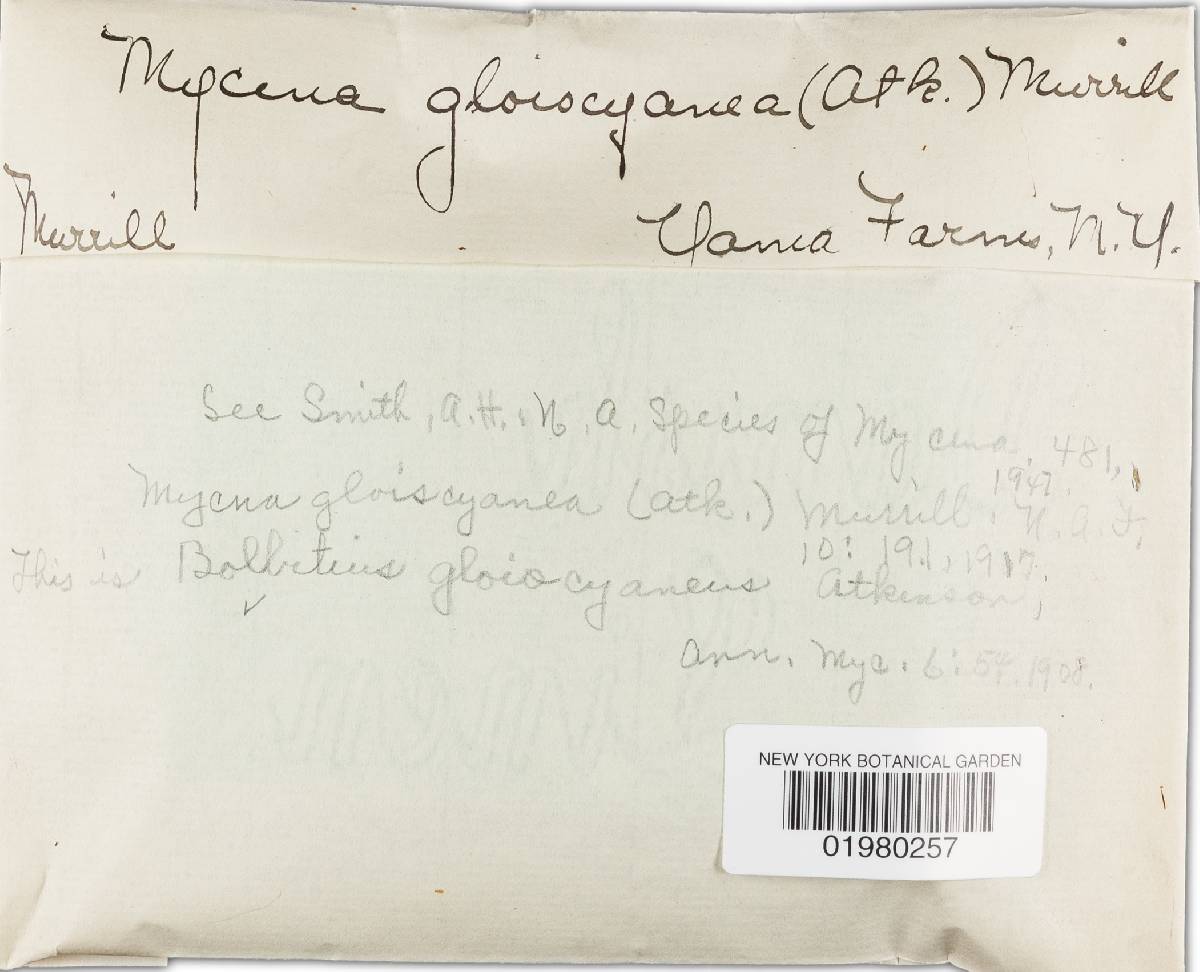 Mycena gloiocyanea (Atk.) Murrill
Murrill Yama Farms, N.Y.
See Smith, A.H., N. A. Species of Mycena. 481,
1947.
Mycna gloiscyanea (Atk.) Murrill. N.A.F.
10: 191, 1917.
This is Bolbitius gloiocyaneus Atkinson,
Ann. Myc. 6: 54. 1908.
NEW YORK BOTANICAL GARDEN
01980257